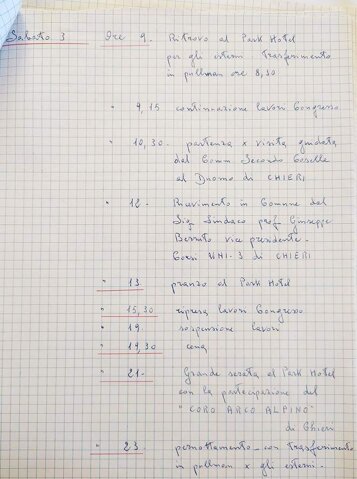 Sabato 3 Ore 9. Ritrovo al Park Hotel
per gli esterni trasferimento
in pullman ore 8,30
" 9,15 continuazione lavori Congresso
" 10,30. partenza x visita guidata
dal Comm Secondo Caselle
al Duomo di CHIERI
" 12 - Ricevimento in Comune dal
Sig. Sindaco prof. Giuseppe
Berruto vice presidente -
Corsi UNI-3 di CHIERI
" 13 pranzo al Park Hotel
" 15,30 ripresa lavori Congresso
" 19 - sospensione lavori
" 19,30 cena
" 21 - Grande serata al Park Hotel
con la partecipazione del
"CORO ARCO ALPINO"
di Chieri
" 23 - pernottamento - con trasferimento
in pullman x gli esterni -